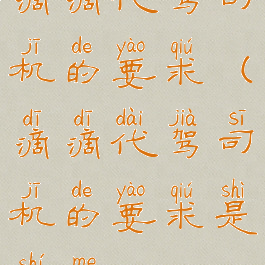 滴滴代驾司
jī de yào qiú
机的要求（
dī dī dài jià sī
滴滴代驾司
jī de yào qiú shì
机的要求是
shí me